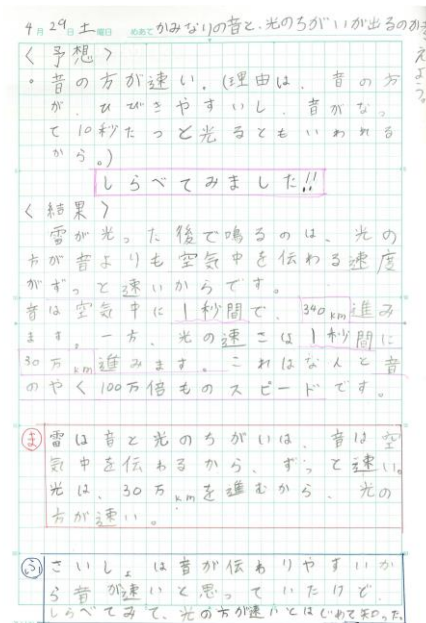 4月29日土曜日 めあて かみなりの音と、光のちがいが出るのか考えよう。
〈予想〉
。音の方が速い。(理由は、音の方
が、ひびきやすいし、音がなっ
て10秒たつと光るともいわれる
から。)
しらべてみました!!
〈結果〉
雷が光った後で鳴るのは、光の
方が音よりも空気中を伝わる速度
がずっと速いからです。
音は空気中に1秒間で、340km進み
ます。一方、光の速さは1秒間に
30万km進みます。これはなんと音
のやく100万倍ものスピードです。
ま 雷は音と光のちがいは、音は空
気中を伝わるから、ずっと速い。
光は、30万kmを進むから、光の
方が速い。
ふ さいしょは音が伝わりやすいか
ら音が速いと思っていたけど、
しらべてみて、光の方が速いとはじめて知った。